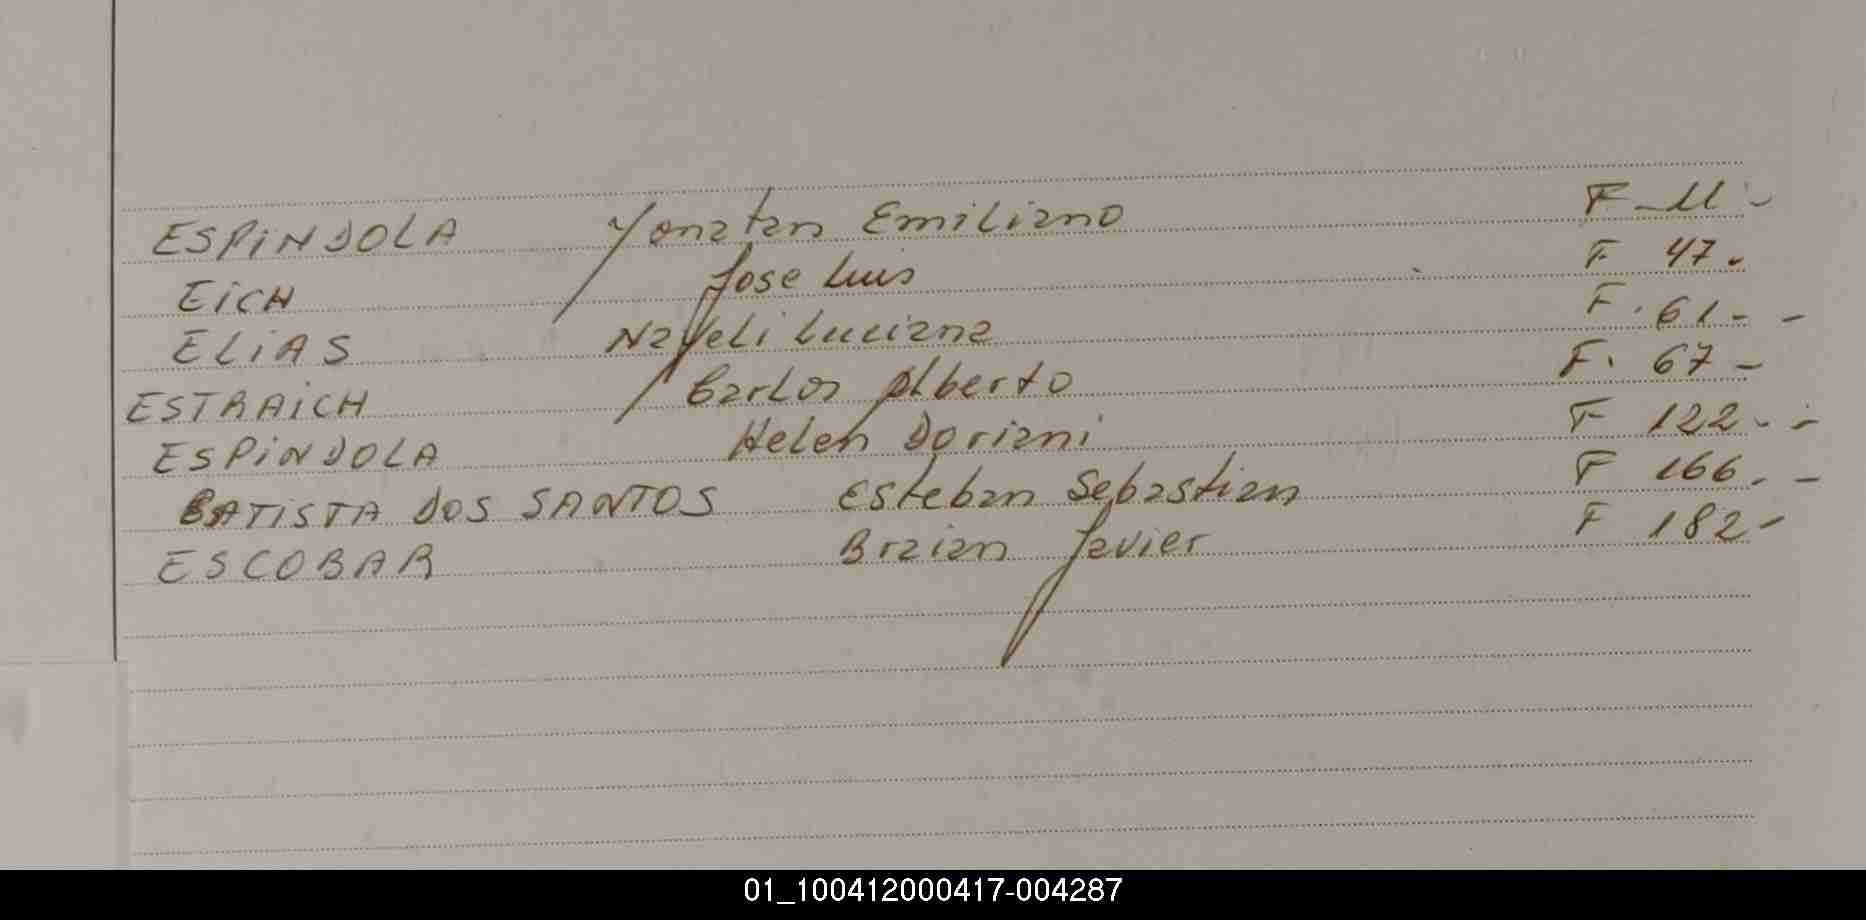 ESPINDOLA Yonatan Emiliano F - 11 -
EICH Jose Luis F 47.
ELIAS Nayeli Luciana F. 61 - -
ESTRAICH Carlos Alberto F. 67 -
ESPINDOLA Helen Doriani F 122 - -
BATISTA DOS SANTOS Esteban Sebastian F 166. -
ESCOBAR Braian Javier F 182 -
01_100412000417-004287